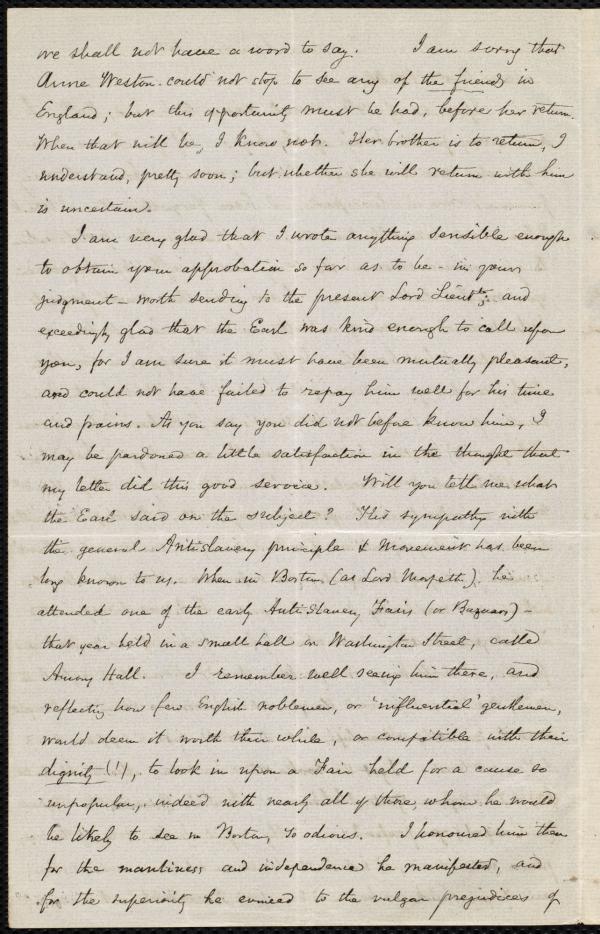 we shall not have a word to say. I am sorry that
Anne Weston could not stop to see any of the friends in
England; but this opportunity must be had, before her return.
When that will be, I know not. Her brother is to return, I
understand, pretty soon; but whether she will return with him
is uncertain.
I am very glad that I wrote anything sensible enough
to obtain your approbation so far as to be - in your
judgment - worth sending to the present Lord Lieutt.; and
exceedingly glad that the Earl was kind enough to call upon
you, for I am sure it must have been mutually pleasant,
and could not have failed to repay him well for his time
and pains. As you say you did not before know him, I
may be pardoned a little satisfaction in the thought that
my letter did this good service. Will you tell me what
the Earl said on the subject? His sympathy with
the general Antislavery principle & movement has been
long known to us. When in Boston, (as Lord Morpeth), he
attended one of the early Anti Slavery Fairs (or Bazaars) -
that year held in a small hall on Washington Street, called
Amory Hall. I remember well seeing him there, and
reflecting how few English noblemen, or 'influential' gentlemen,
would deem it worth their while, or compatible with their
dignity (!), to look in upon a Fair held for a cause so
unpopular, indeed with nearly all of those, whom he would
be likely to see in Boston, so odious. I honoured him then
for the manliness and independence he manifested, and
for the superiority he evinced to the vulgar prejudices of